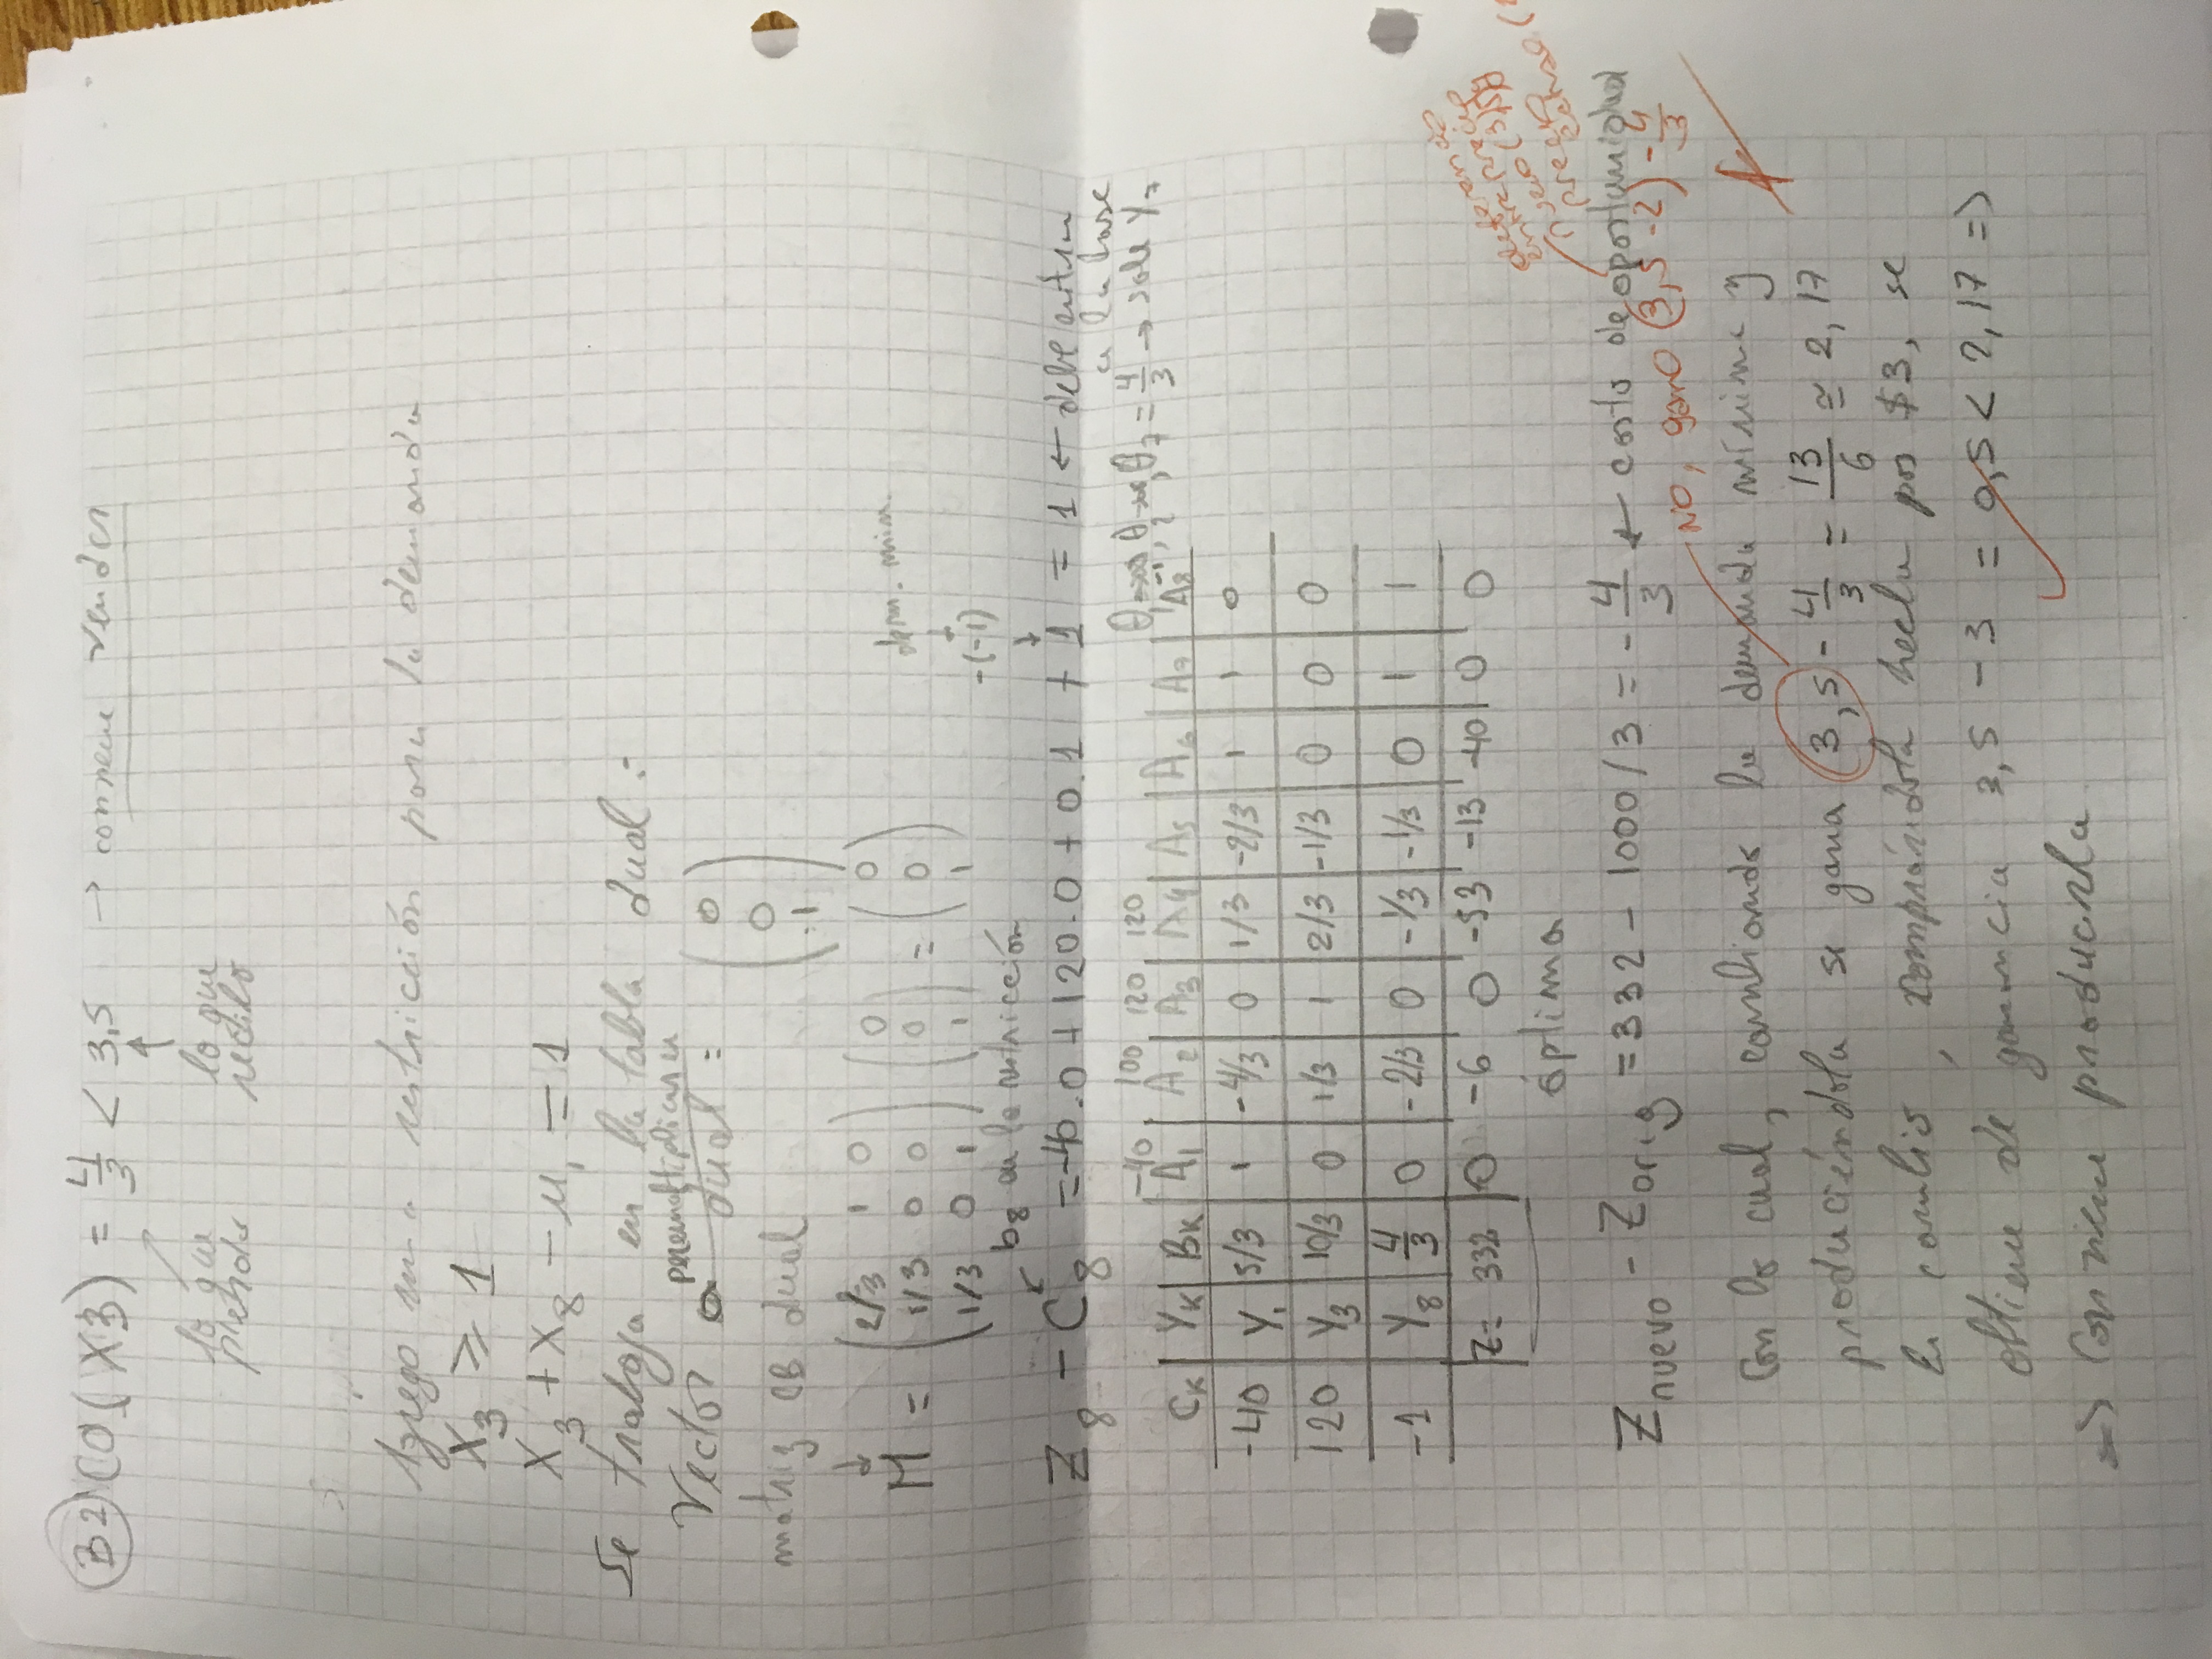 B2 CO(X3) = 4/3 < 3,5 → conviene vender
lo que pierdo
lo que recibo
Agrego una restricción para la demanda
X3 ≥ 1
X3 + X8 - μ1 = 1
Se trabaja en la tabla dual:
Vector premultiplicar a dual: (0 0 -1)
matriz CB dual
M = (2/3 1 0 / 1/3 0 0 / 1/3 0 1) (0 0 1) = (0 0 1)
dem. min.
-(-1)
b8 en la restricción
Z8 - C8 = -40.0 + 120.0 + 0.1 + 1 = 1 ← debe entrar a la base
θ7 = 4/3 → sale Y7
-40 100 120 120
CK YK BK A1 A2 A3 A4 A5 A6 A7 A8
-40 Y1 5/3 1 -4/3 0 1/3 -2/3 1 1 0
120 Y3 10/3 0 1/3 1 2/3 -1/3 0 0 0
-1 Y8 4/3 0 -2/3 0 -1/3 -1/3 0 1 1
Z= 332 0 -6 0 -53 -13 -40 0 0
óptima
Znuevo - Zorig = 332 - 1000/3 = -4/3 ← costo de oportunidad
NO, gano (3,5 - 2) - 4/3
Con lo cual, cambiando la demanda mínima y
produciéndola se gana 3,5 - 4/3 = 13/6 ≃ 2,17
En cambio, comprándola hecha por $3, se
obtiene de ganancia 3,5 - 3 = 0,5 < 2,17 =>
=> Conviene producirla